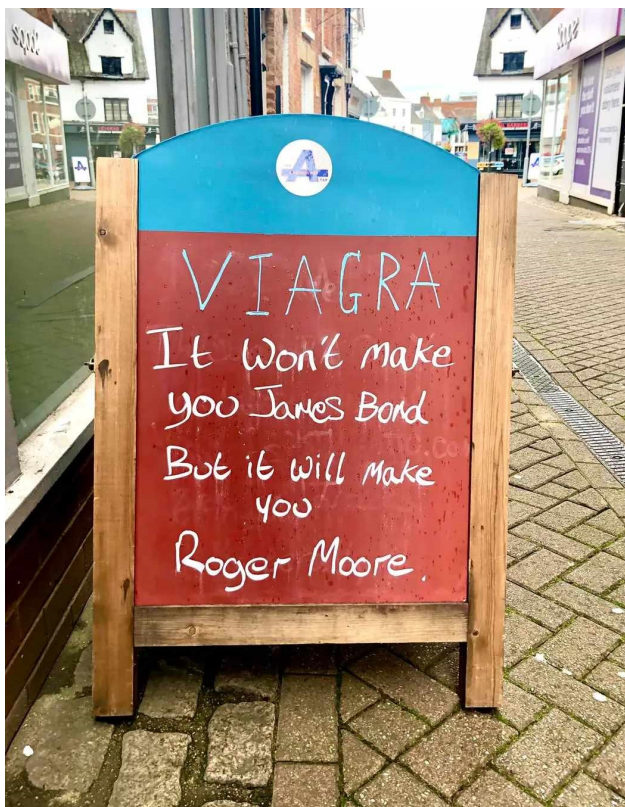 VIAGRA
It Won't make
you James Bond
But it will make
you
Roger Moore.